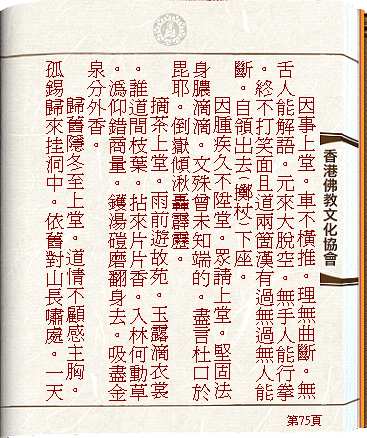 因事上堂。車不橫推。理無曲斷。無
舌人能解語。元來大脫空。無手人能行拳
。終不打笑面且道兩箇漢有過無過無人能
斷。自領出去(擲杖)下座。
因腫疾久不陞堂。眾請上堂。堅固法
身膿滴滴。文殊曾未知端的。盡言杜口於
毘耶。倒嶽傾湫轟霹靂。
摘茶上堂。雨前遊故苑。玉露滴衣裳
。誰道間枝葉。拈來片片香。入林何動草
。溈仰錯商量。鑊湯磑磨翻身去。吸盡金
泉分外香。
歸舊隱冬至上堂。道情不顧感主胸。
孤錫歸來挂洞中。依舊對山長嘯處。一天
香港佛教文化協會
第75頁